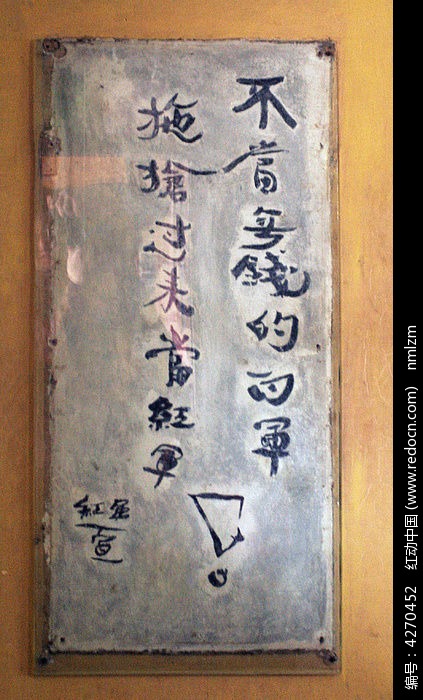 不當無錢的白軍
拖搶过来當紅軍
！
紅軍
宣
编号：4270452 红动中国 (www.redocn.com) nmlzm